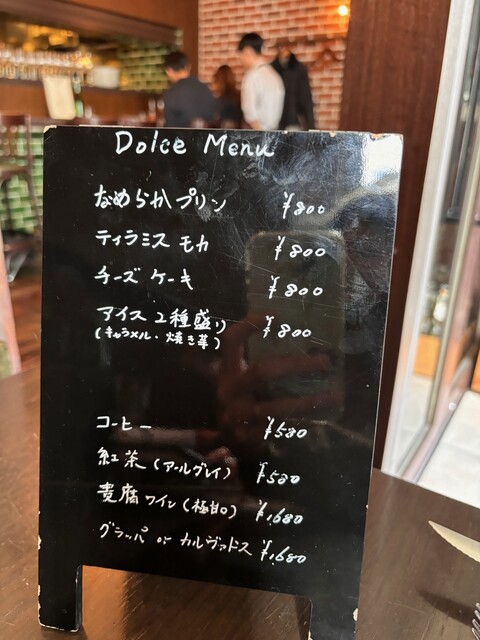 Dolce Menu
なめらかプリン ¥800
ティラミス モカ ¥800
チーズケーキ ¥800
アイス2種盛り ¥800
(キャラメル・焼き芋)
コーヒー ¥580
紅茶(アールグレイ) ¥580
貴腐ワイン(極甘口) ¥1,680
グラッパ or カルヴァドス ¥1,680